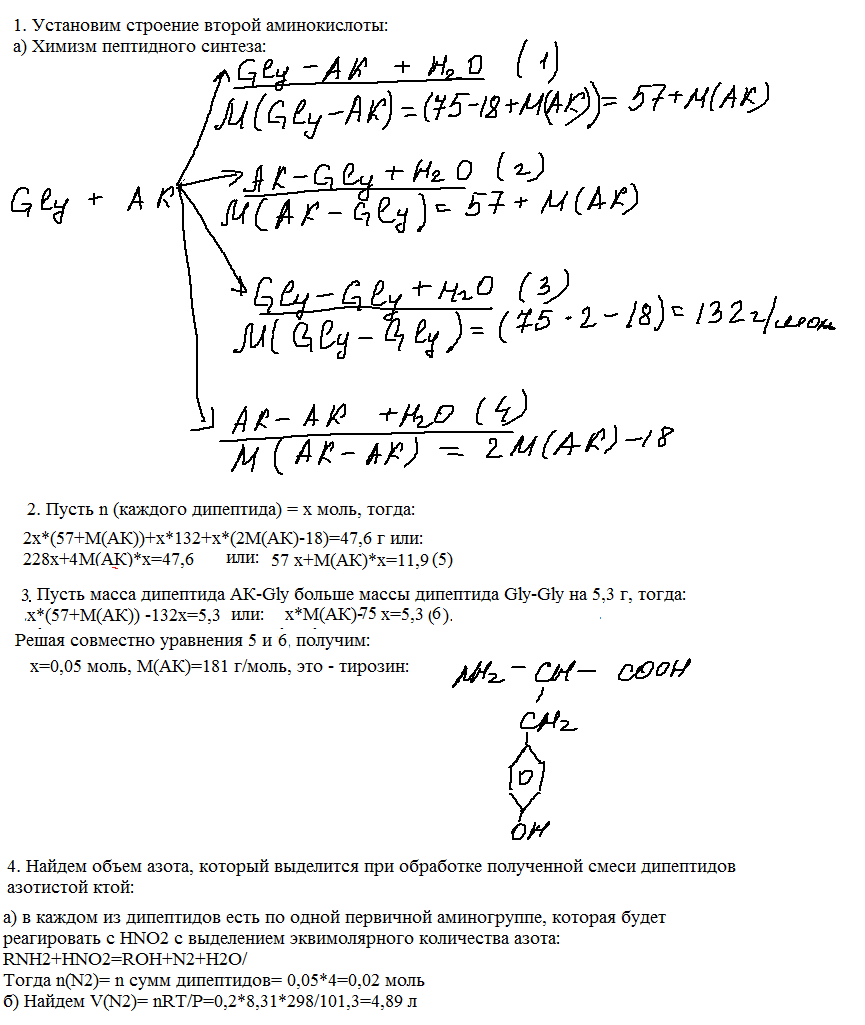 1. Установим строение второй аминокислоты:
а) Химизм пептидного синтеза:
Gly - АК + H2O (1)
M(Gly-АК)=(75-18+M(АК))= 57+M(АК)
Gly + АК
АК-Gly+H2O (2)
M(АК-Gly)= 57+ M(АК)
Gly-Gly+H2O (3)
M(Gly-Gly)=(75·2-18)=132 г/моль
АК-АК +H2O (4)
M(АК-АК) = 2M(АК)-18
2. Пусть n (каждого дипептида) = x моль, тогда:
2x*(57+M(АК))+x*132+x*(2M(АК)-18)=47,6 г или:
228x+4M(АК)*x=47,6 или: 57 x+M(АК)*x=11,9 (5)
3. Пусть масса дипептида АК-Gly больше массы дипептида Gly-Gly на 5,3 г, тогда:
x*(57+M(АК)) -132x=5,3 или: x*M(АК)-75 x=5,3 (6).
Решая совместно уравнения 5 и 6, получим:
x=0,05 моль, M(АК)=181 г/моль, это - тирозин:
NH2 - CH - COOH
CH2
OH
4. Найдем объем азота, который выделится при обработке полученной смеси дипептидов
азотистой ктой:
а) в каждом из дипептидов есть по одной первичной аминогруппе, которая будет
реагировать с HNO2 с выделением эквимолярного количества азота:
RNH2+HNO2=ROH+N2+H2O/
Тогда n(N2)= n сумм дипептидов= 0,05*4=0,02 моль
б) Найдем V(N2)= nRT/P=0,2*8,31*298/101,3=4,89 л